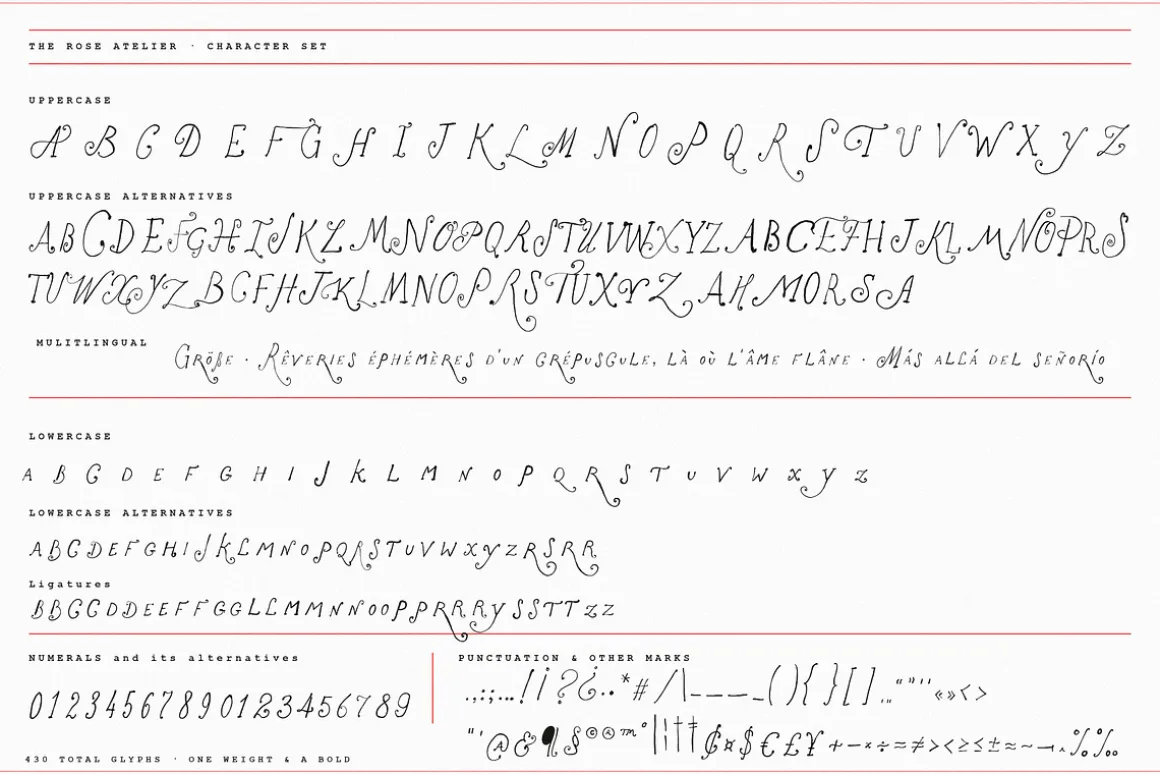 THE ROSE ATELIER · CHARACTER SET
UPPERCASE
A B C D E F G H I J K L M N O P Q R S T U V W X Y Z
UPPERCASE ALTERNATIVES
A B C D E F G H I J K L M N O P Q R S T U V W X Y Z A B C E F H J K L M N O P R S
T U W X Y Z B C F H J K L M N O P R S T U X Y Z A H M O R S A
MULITLINGUAL
GRÖßE · RÊVERIES ÉPHÉMÈRES D'UN CRÉPUSCULE, LÀ OÙ L'ÂME FLÂNE · MÁS ALLÁ DEL SEÑORÍO
LOWERCASE
A B C D E F G H I J K L M N O P Q R S T U V W X Y Z
LOWERCASE ALTERNATIVES
A B C D E F G H I J K L M N O P Q R S T U V W X Y Z R S R R
Ligatures
BB CC DD EE FF GG LL MM NN OO PP RR RY SS TT ZZ
NUMERALS and its alternatives
0 1 2 3 4 5 6 7 8 9 0 1 2 3 4 5 6 7 8 9
PUNCTUATION & OTHER MARKS
.,:;…!¡?¿·•*#/\-–—_(){}[]‚„“”‘’«»‹›
"'@&¶§©®™°|¦†‡₵¤$€£¥+−×÷=≠><≥≤±≈~¬^%‰
430 TOTAL GLYPHS · ONE WEIGHT & A BOLD